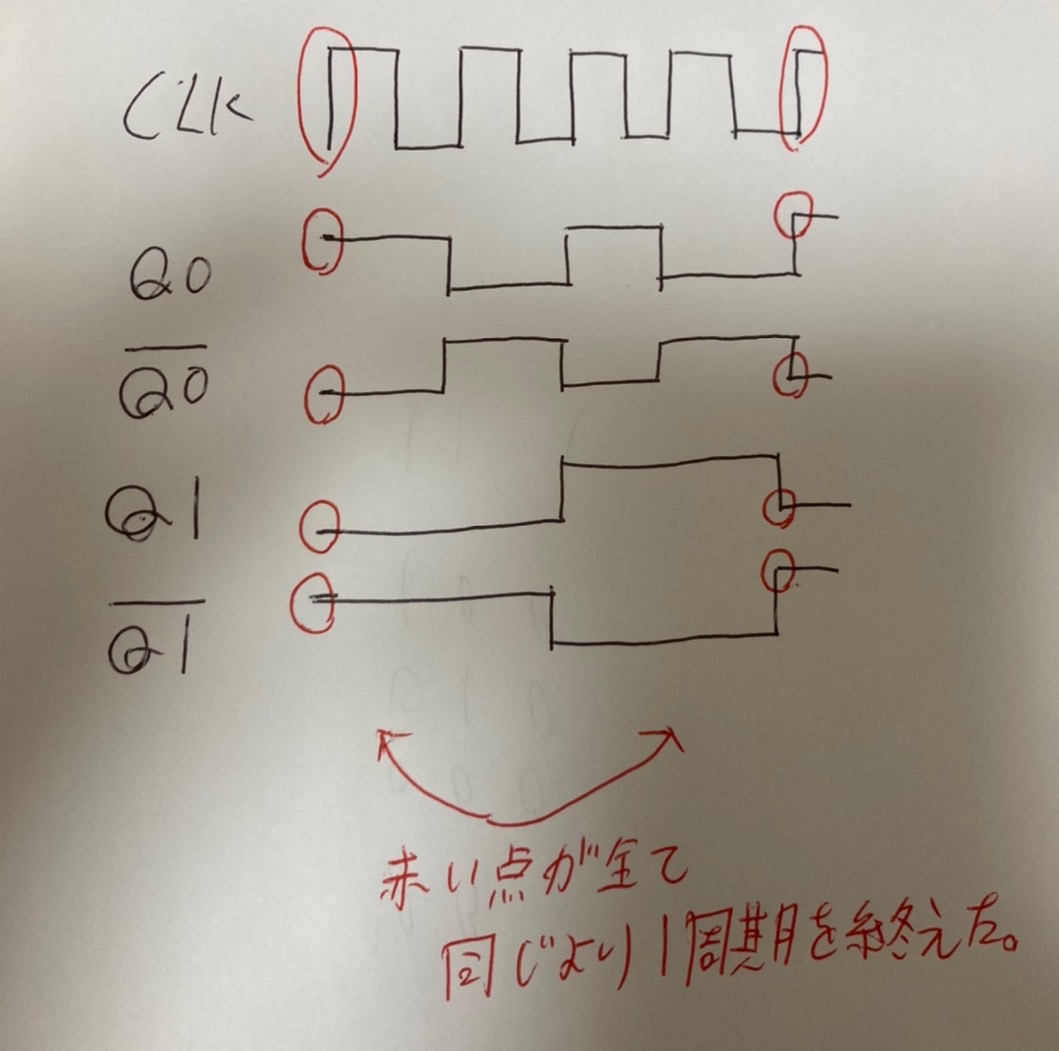 CLK
Q0
Q̅0̅
Q1
Q̅1̅
赤い点が全て
同じより1周期を終えた。